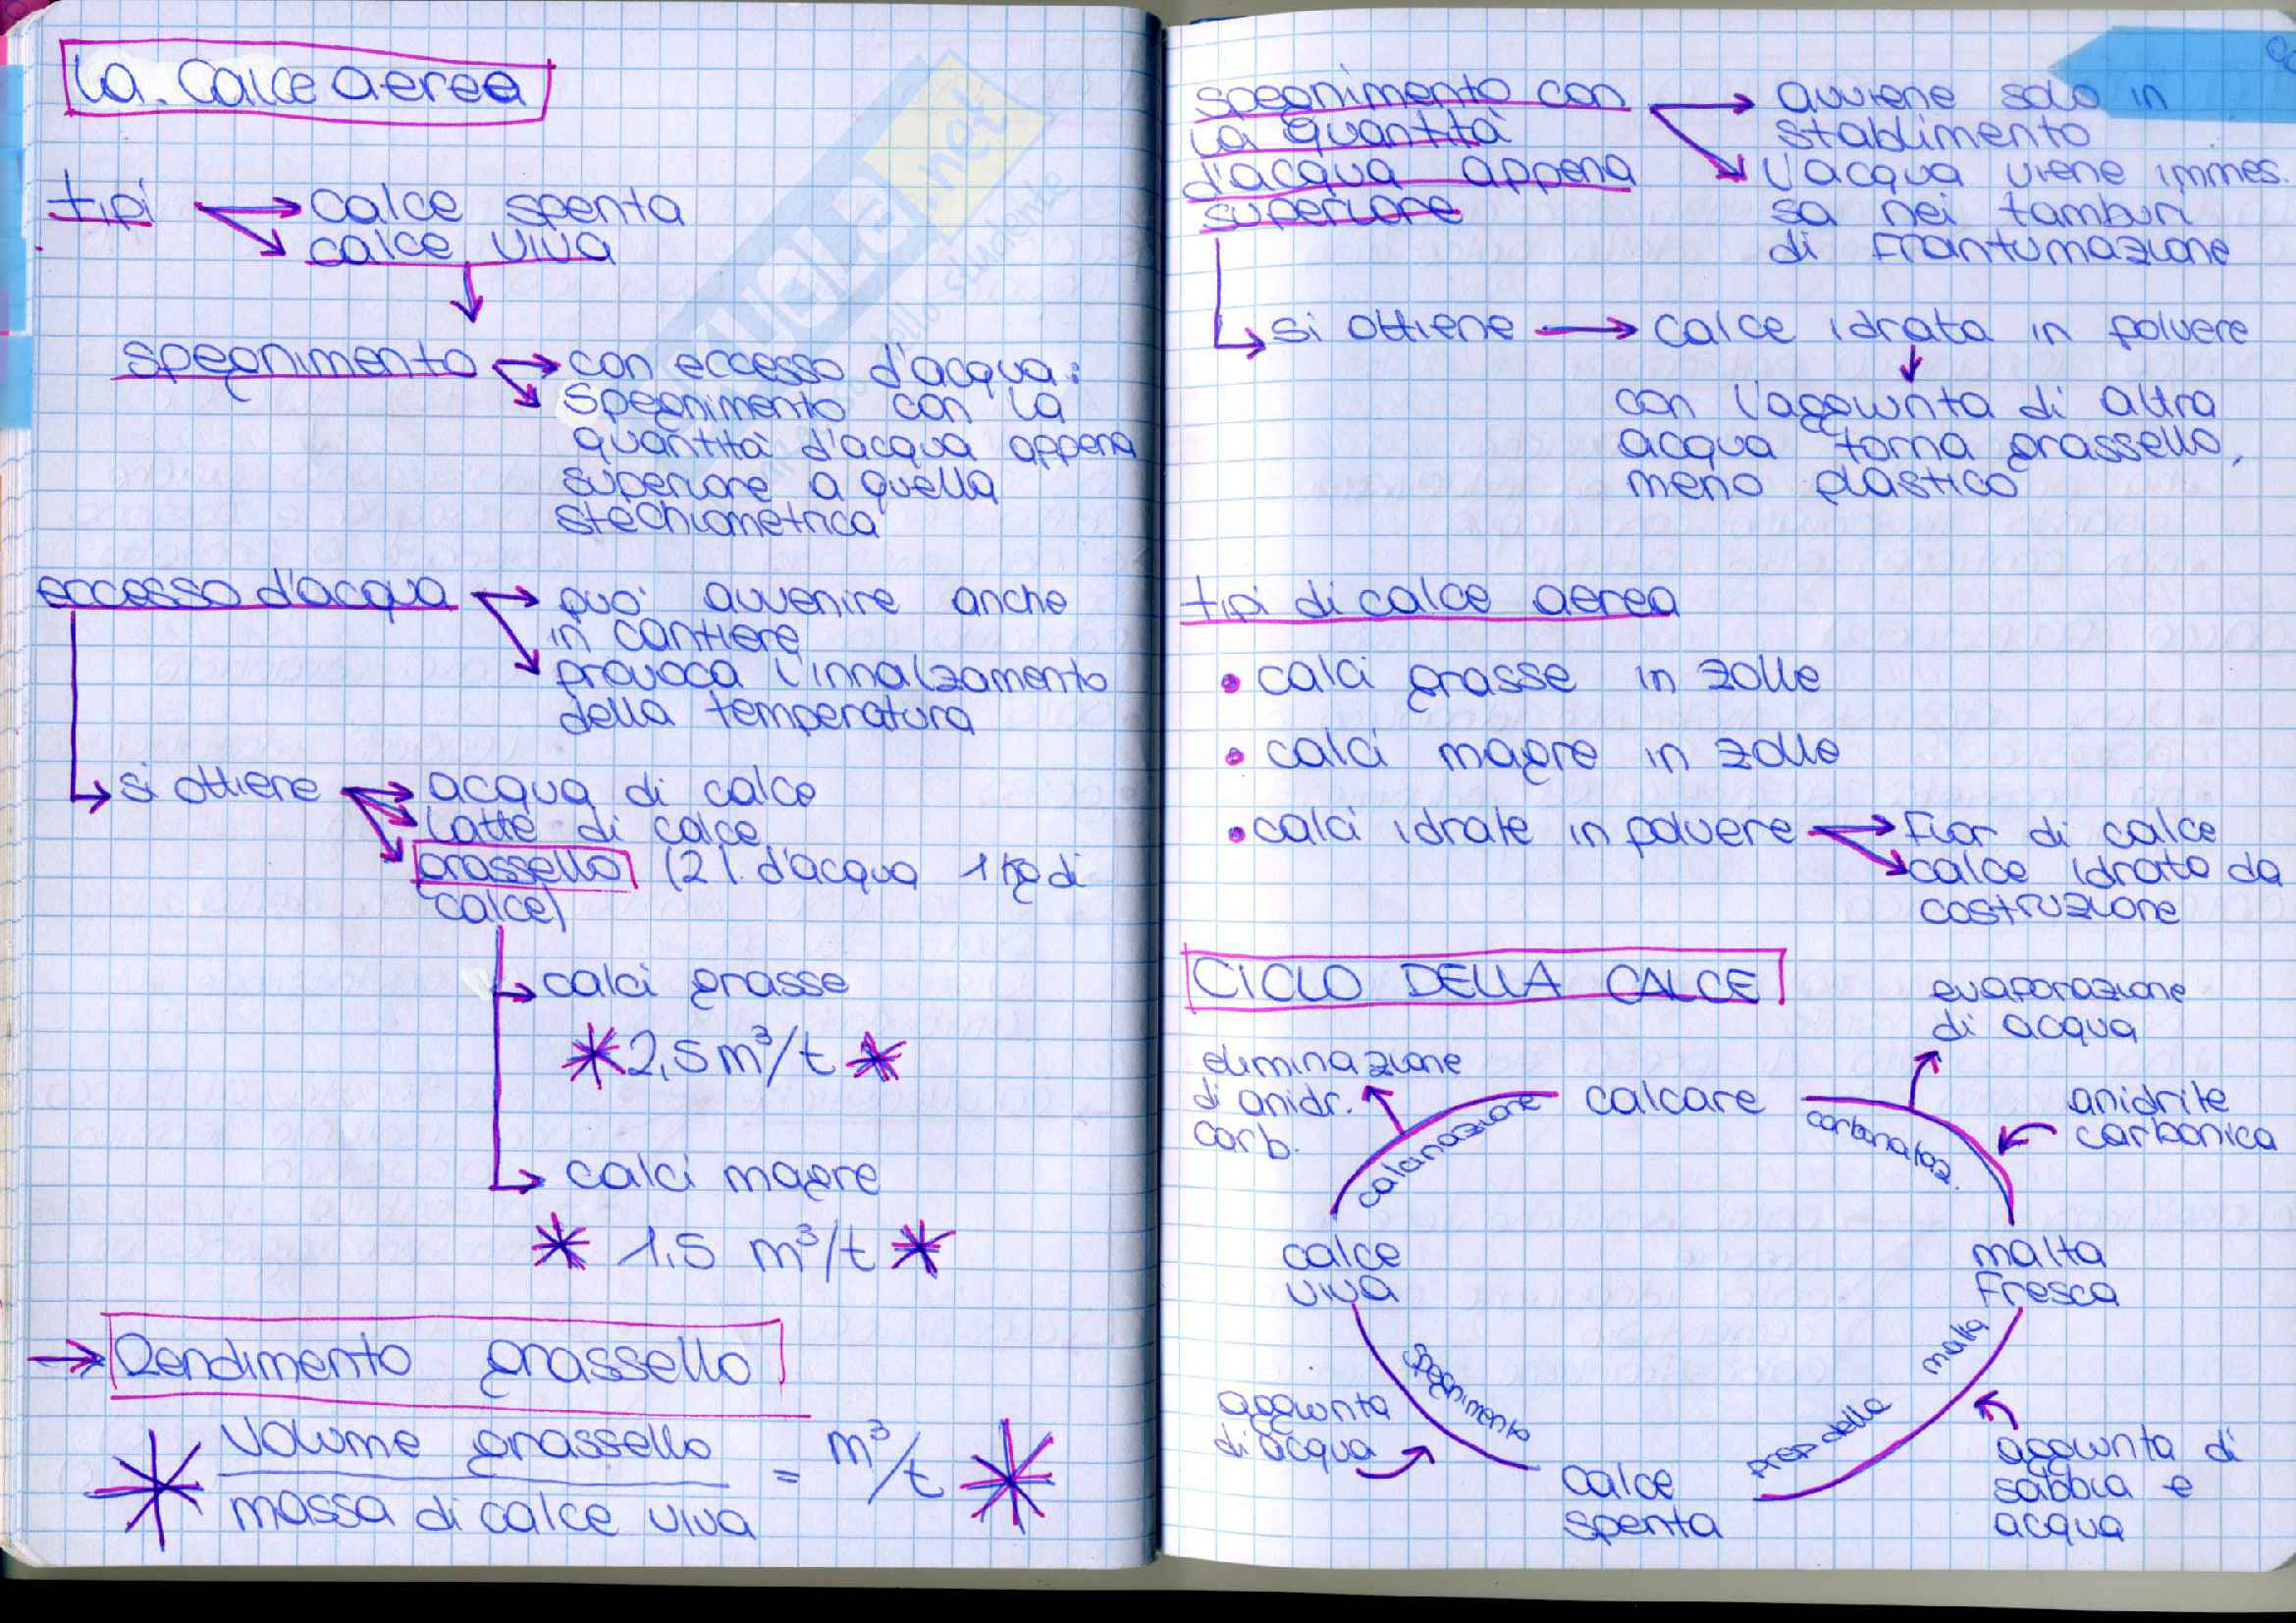 La calce aerea
tipi
calce spenta
calce viva
spegnimento
con eccesso d'acqua:
spegnimento con la
quantità d'acqua appena
superiore a quella
stechiometrica
eccesso d'acqua
può avvenire anche
in cantiere
provoca l'innalzamento
della temperatura
si ottiene
acqua di calce
latte di calce
grassello (2 l. d'acqua 1 kg di
calce)
calci grasse
2,5 m³/t
calci magre
1,5 m³/t
Rendimento grassello
volume grassello
massa di calce viva
= m³/t
spegnimento con
la quantità
d'acqua appena
superiore
avviene solo in
stabilimento
l'acqua viene immes.
sa nei tamburi
di frantumazione
si ottiene
calce idrata in polvere
con l'aggiunta di altra
acqua torna grassello,
meno plastico
tipi di calce aerea
• calci grasse in zolle
• calci magre in zolle
• calci idrate in polvere
Fior di calce
calce idrata da
costruzione
CICLO DELLA CALCE
evaporazione
di acqua
eliminazione
di anidr.
carb.
calcare
anidrite
carbonica
carbonataz.
calce
viva
malta
fresca
spegnimento
malta
prep della
aggiunta
di acqua
calce
spenta
aggiunta di
sabbia e
acqua
net
dello studente